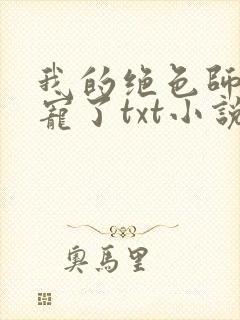 我的绝色師
寵了txt小說
奧馬里